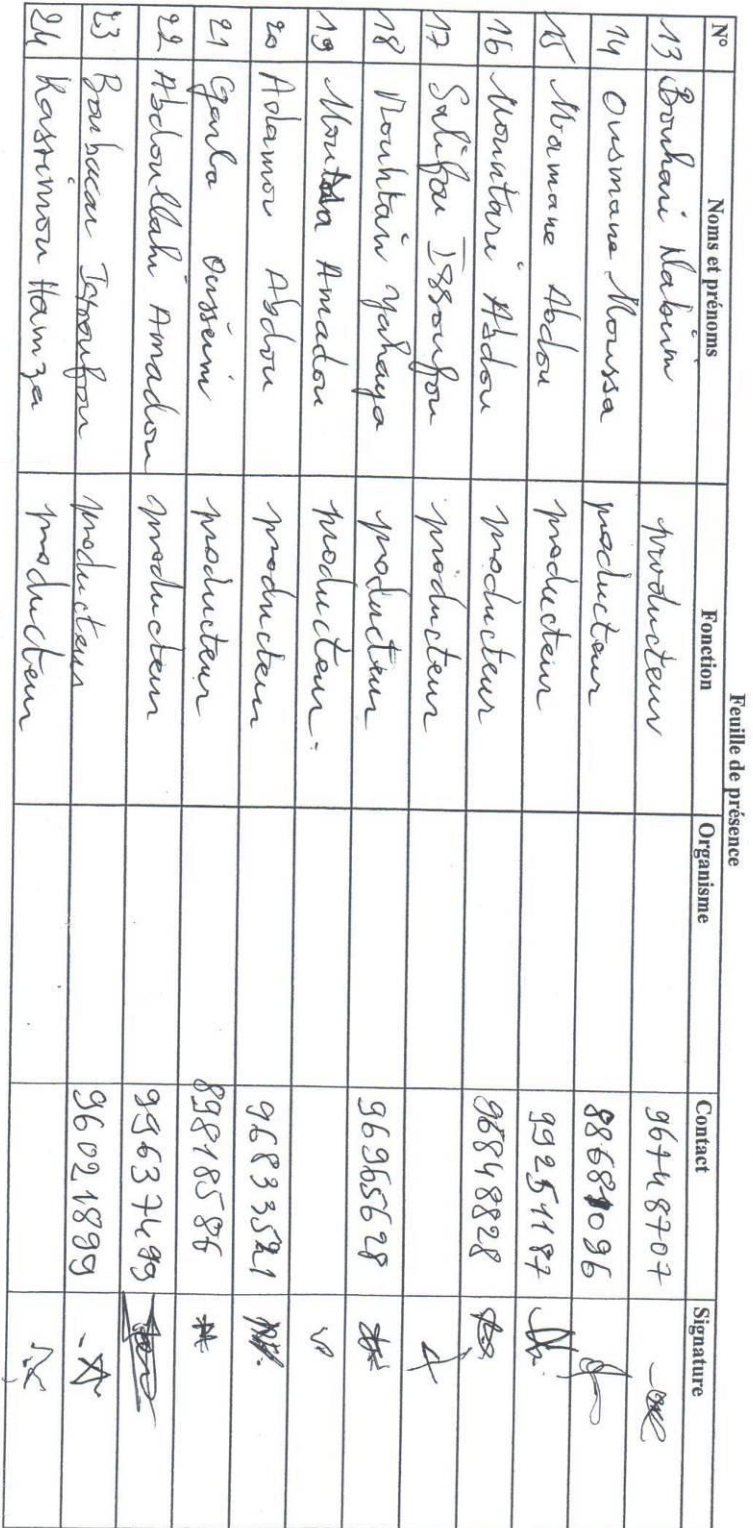 Feuille de présence
N° Noms et prénoms Fonction Organisme Contact Signature
13 Bouhari Nabirin producteur 96748707
14 Ousmane Moussa producteur 88681096
15 Mamane Abdou producteur 99251187
16 Mountari Abdou producteur 96848828
17 Salifou Issoufou producteur
18 Mouhtari Yahaya producteur 96965628
19 Moutari Amadou producteur.
20 Adamou Abdou producteur 96833521
21 Garba Ousseini producteur 89818586
22 Abdoullahi Amadou producteur 99637499
23 Boubacar Issoufou producteur 96021899
24 Kassimou Hamza producteur